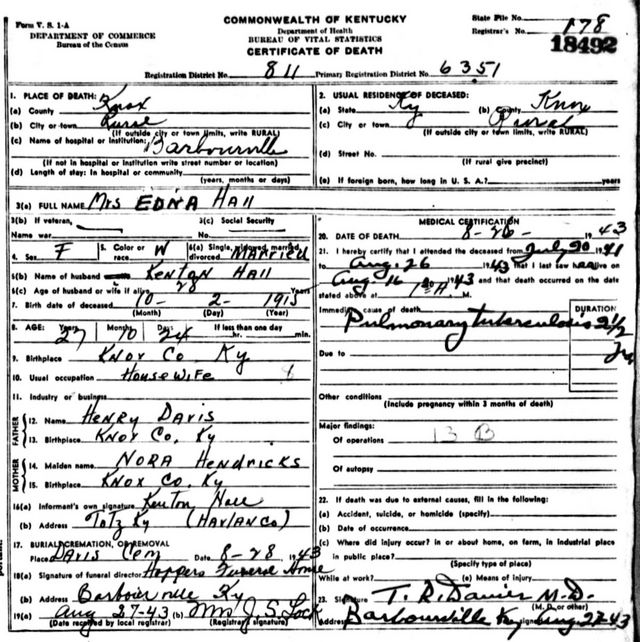 Form V. S. 1-A
DEPARTMENT OF COMMERCE
Bureau of the Census
COMMONWEALTH OF KENTUCKY
Department of Health
BUREAU OF VITAL STATISTICS
CERTIFICATE OF DEATH
State File No.
Registrar's No. 178
18492
Registration District No. 811 Primary Registration District No. 6351
1. PLACE OF DEATH:
(a) County Knox
(b) City or town
(If outside city or town limits, write RURAL)
(c) Name of hospital or institution: Barbourville
(If not in hospital or institution write street number or location)
(d) Length of stay: In hospital or community
(years, months or days)
2. USUAL RESIDENCE OF DECEASED:
(a) State Ky (b) County Knox
(c) City or town Rural
(If outside city or town limits, write RURAL)
(d) Street No.
(If rural give precinct)
(e) If foreign born, how long in U. S. A.? years
3(a) FULL NAME Mrs EDNA Hall
3(b) If veteran,
Name war
3(c) Social Security
No.
4. Sex F 5. Color or race W 6(a) Single, widowed, married, divorced MARRIED
5(b) Name of husband KENTON Hall
5(c) Age of husband or wife if alive 28 Years
7. Birth date of deceased 10- 2- 1915
(Month) (Day) (Year)
8. AGE: Years Months Days If less than one day
27 10 24 hr. min.
9. Birthplace KNOX Co. Ky
10. Usual occupation HOUSEWIFE
11. Industry or business
FATHER
12. Name HENRY DAVIS
13. Birthplace KNOX Co. Ky
MOTHER
14. Maiden name NORA HENDRICKS
15. Birthplace KNOX Co. Ky
16(a) Informant's own signature Kenton Hall
(b) Address Totz Ky (HARLAN Co)
17. BURIAL, CREMATION, OR REMOVAL
Place Davis Cem Date 8-28 1943
18(a) Signature of funeral director Hoppers Funeral Home
(b) Address Barbourville Ky
19(a) Aug 27-43 (b) Mrs J. S. Lock
(Date received by local registrar) (Registrar's signature)
MEDICAL CERTIFICATION
20. DATE OF DEATH 8-26- 1943
21. I hereby certify that I attended the deceased from July 20 1941
to Aug. 26 1943 that I last saw alive on
Aug 16 1943 and that death occurred on the date
stated above at M.
Immediate cause of death DURATION
Pulmonary tuberculosis 2 1/2
Due to
Other conditions
(Include pregnancy within 3 months of death)
Major findings:
Of operations 13 B
Of autopsy
22. If death was due to external causes, fill in the following:
(a) Accident, suicide, or homicide (specify)
(b) Date of occurrence
(c) Where did injury occur? in or about home, on farm, in industrial place
in public place?
(Specify type of place)
While at work? (e) Means of injury
23. Signature T. R. Davies M.D.
(M. D. or other)
Barbourville Ky Aug 27-43